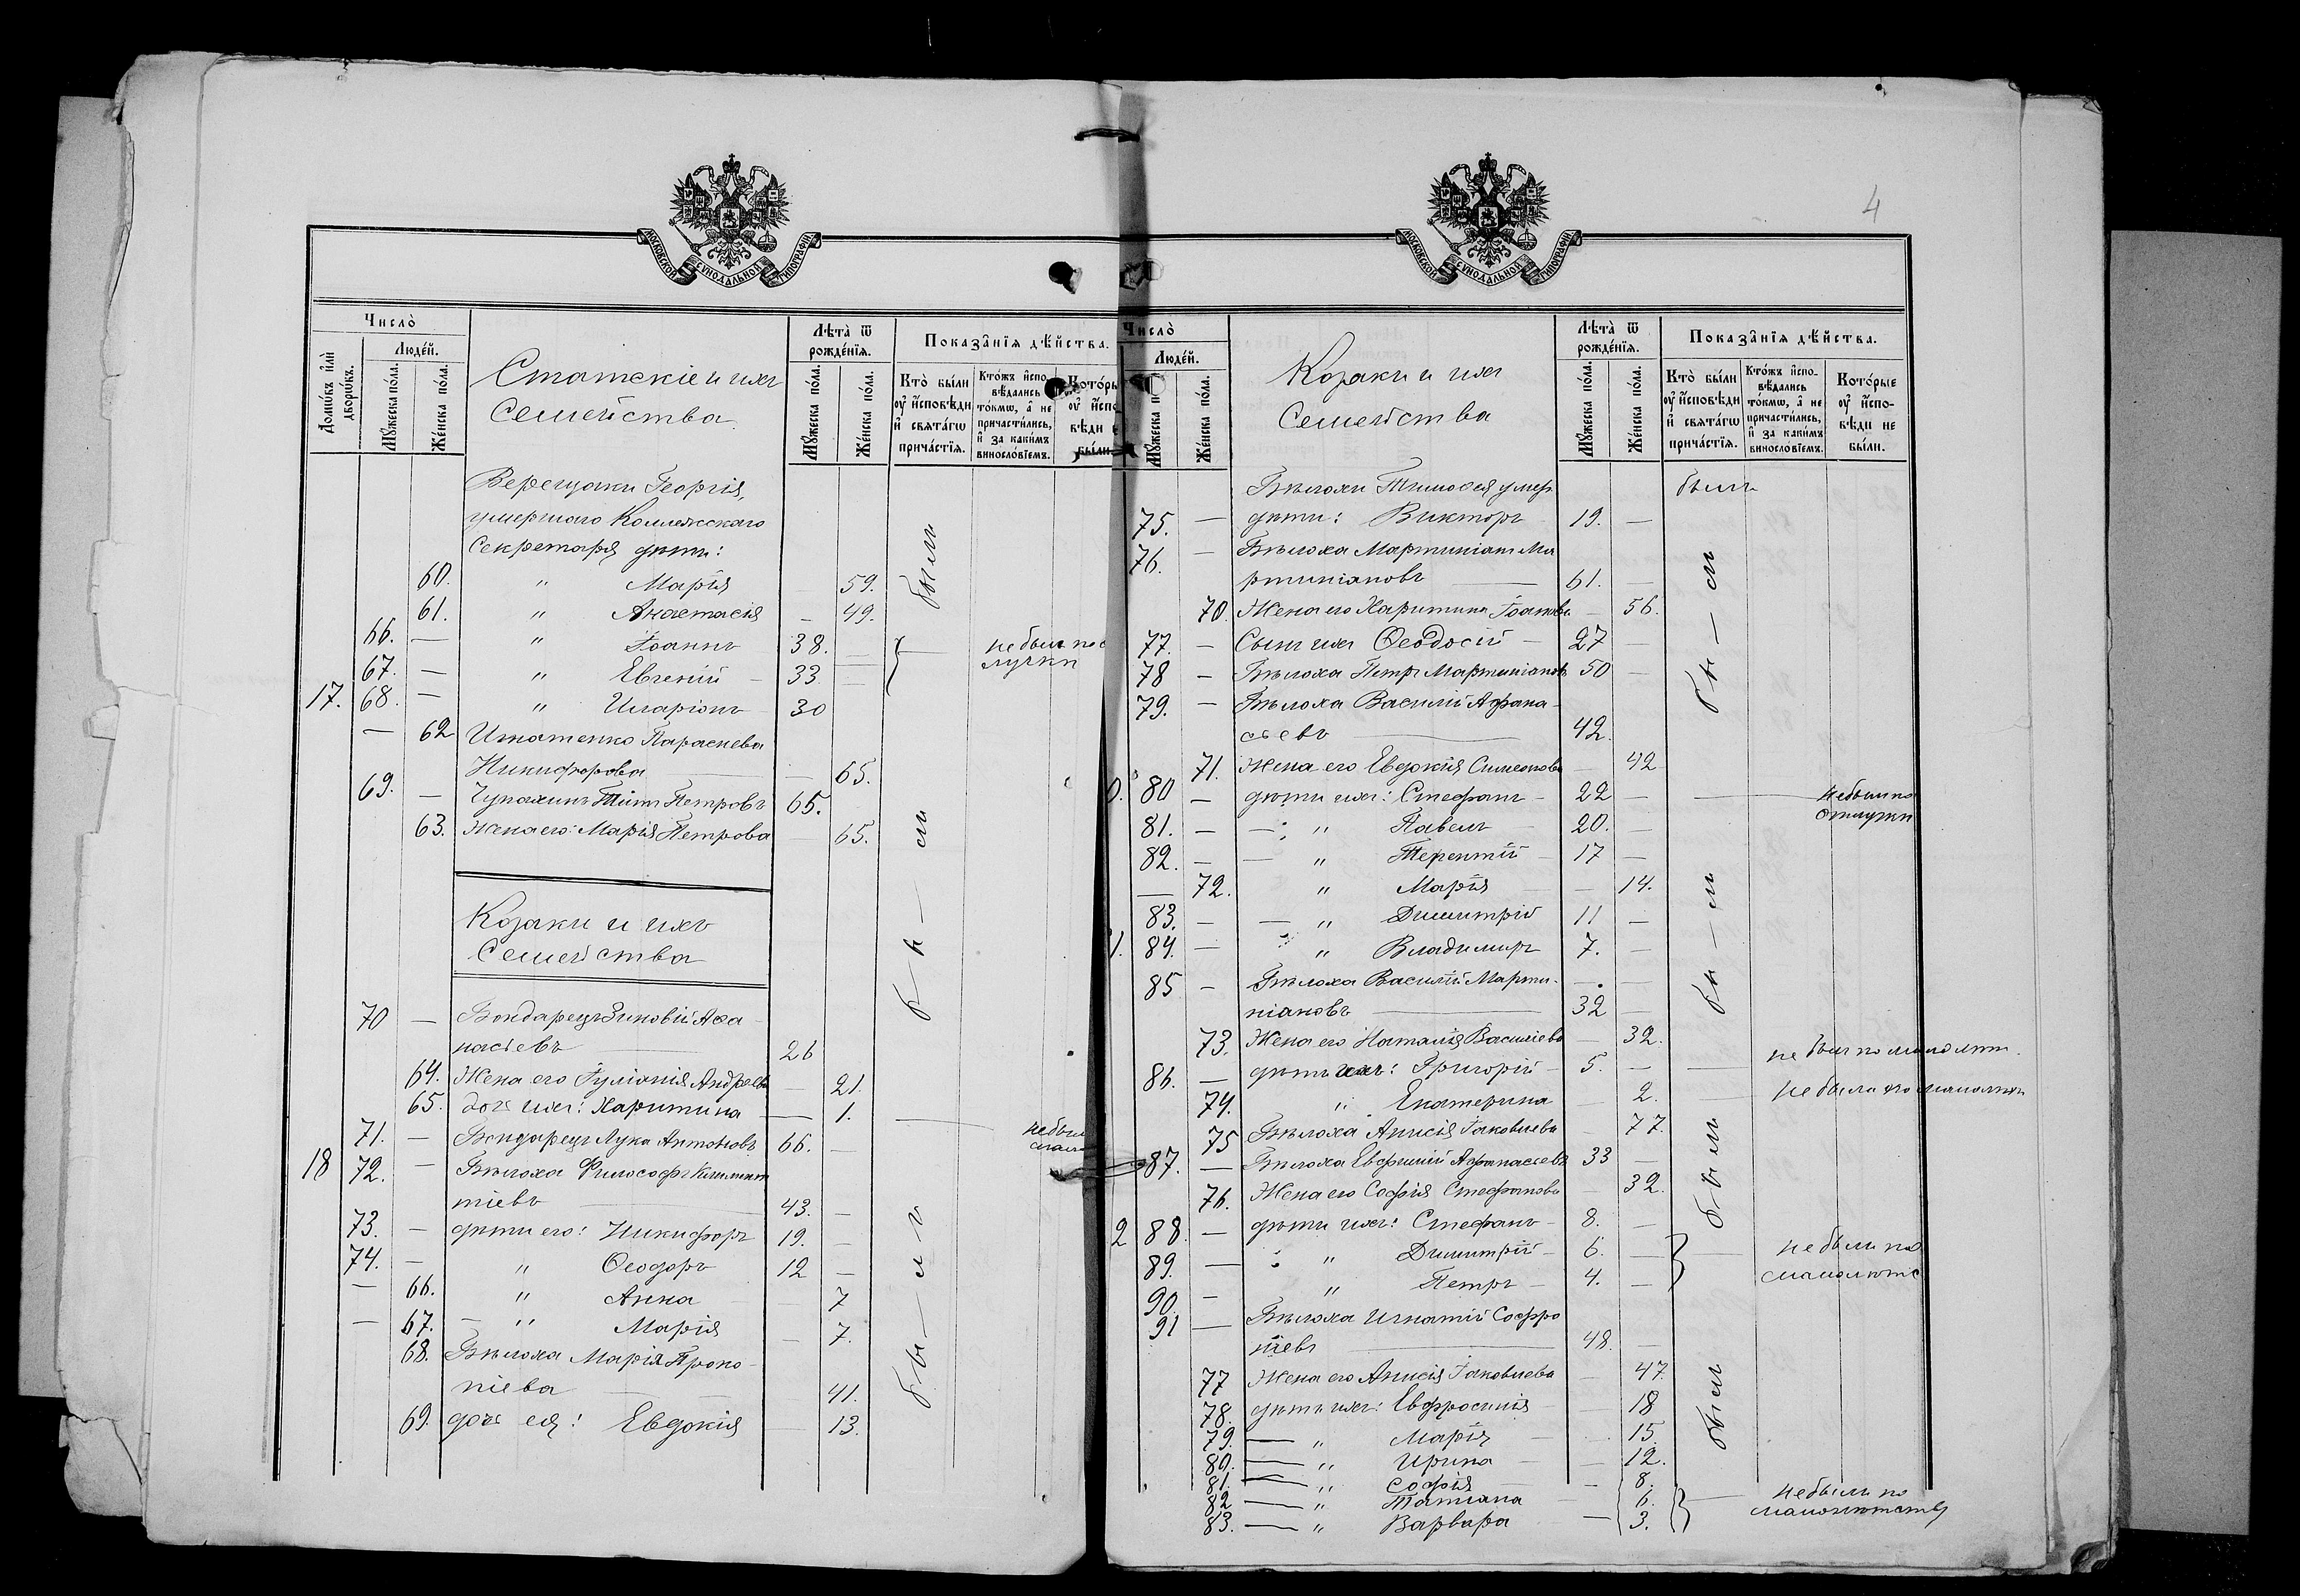 4
МОСКОВСКОЙ СѴНОДАЛЬНОЙ ТИПОГРАФІИ
Число̀
Домѡ́въ и҆лѝ дворѡ́въ.
Люде́й.
Мꙋ́жеска по́ла.
Же́нска по́ла.
Статскіе и ихъ
Семейства
Лѣ́та ѿ рожде́нїѧ.
Мꙋ́жеска по́ла.
Же́нска по́ла.
Показа̑нїѧ дѣ́йства.
Кто̀ бы́ли ᲂу҆ и҆сповѣ́ди и҆ свѧта́гѡ прича́стїѧ.
Кто́жъ и҆спо-
вѣ́дались
то́кмѡ, а҆ не
причасти́лись,
и҆ за каки́мъ
винослов́їемъ.
Верещаки Георгія,
умершаго Коллежскаго
Секретаря дѣти:
60. " Марія 59.
61. " Анастасія - 49.
были
66. — " Іоаннъ 38. —
67. — " Евгеній — 33 —
не были по
лучки
17. 68. — " Иларіонъ 30
— 62 Игнатенко Параскева
Никифорова — 65.
69. — Чупахинъ Титъ Петровъ 65.
63. Жена его: Марія Петрова 65.
бы — ли
Козаки и ихъ
Семейства
70 — Бондарецъ Зиновій Аѳа-
насьевъ 26
64. Жена его Іуліанія Андреева — 21.
65. дочь ихъ: Харитина — 1. —
не был
71. — Бондарецъ Лука Антоновъ 66. —
18 72. — Бѣлоха Философъ Климент
тіевъ — 43. —
73. — дѣти его: Никифоръ 19. —
74. — " Ѳеодоръ 12 —
— 66. " Анна 7
— 67. — " Марія — 7.
68. Бѣлоха Марія Проко-
піева 41.
69. дочь ея: Евдокія — 13.
бы — ли
МОСКОВСКОЙ СѴНОДАЛЬНОЙ ТИПОГРАФІИ
Число̀
Люде́й.
Же́нска по́ла.
Козаки и ихъ
Семейства
Лѣ́та ѿ рожде́нїѧ.
Мꙋ́жеска по́ла.
Же́нска по́ла.
Показа̑нїѧ дѣ́йства.
Кто̀ бы́ли ᲂу҆ и҆сповѣ́ди и҆ свѧта́гѡ прича́стїѧ.
Кто́жъ и҆спо-
вѣ́дались
то́кмѡ, а҆ не
причасти́лись,
и҆ за каки́мъ
винослов́їемъ.
Кото́рые
ᲂу҆ и҆спо-
вѣ́ди не
бы́ли.
Бѣлохи Тимоѳея умер.
былъ
75. — дѣти: Викторъ 19. —
76. — Бѣлоха Мартиніанъ Ма
ртиніановъ — 61. —
70. Жена его Харитина Іоанова — 56.
77. — Сынъ ихъ Ѳеодосій — 27 —
78 — Бѣлоха Петръ Мартиніановъ 50 —
79. — Бѣлоха Василій Афана-
сьевъ — 42.
бы — ли
71. Жена его Евдокія Симеонова — 42
0. 80 — дѣти ихъ: Стефанъ — 22 — —
не былъ по
отлучки
81. — — " Павелъ — 20. —
82. — — " Терентій — 17 —
— 72. " Марія — — 14.
83. — — " Димитрій 11 —
1. 84. — " Владимиръ 7. —
85 — Бѣлоха Василій Марти-
ніановъ — 32 —
бы — ли
73. Жена его Наталія Василіева — 32.
86. — дѣти ихъ: Григорій — 5. — —
не былъ по малолѣт.
74. " Екатерина — 2. —
не была по малолѣт
75 Бѣлоха Анисія Іаковлева — 77.
87. — Бѣлоха Евфимій Афанасьевъ 33 —
76. Жена его Софія Стефанова — 32.
были
2 88. — дѣти ихъ: Стефанъ — 8. —
89. — " Димитрій — 6. —
90. — " Петръ — 4. —
не были по
малолѣтс
91 — Бѣлоха Игнатій Софро
ніевъ — 48. —
77 Жена его Анисія Іаковлева — 47.
78. дѣти ихъ: Евфросинія — 18
79. — " Марія — 15.
80. — " Ирина — 12.
81. — " Софія — 8.
82 — " Татіана — 6.
83. — " Варвара — 3.
были
не были по
малолѣтству